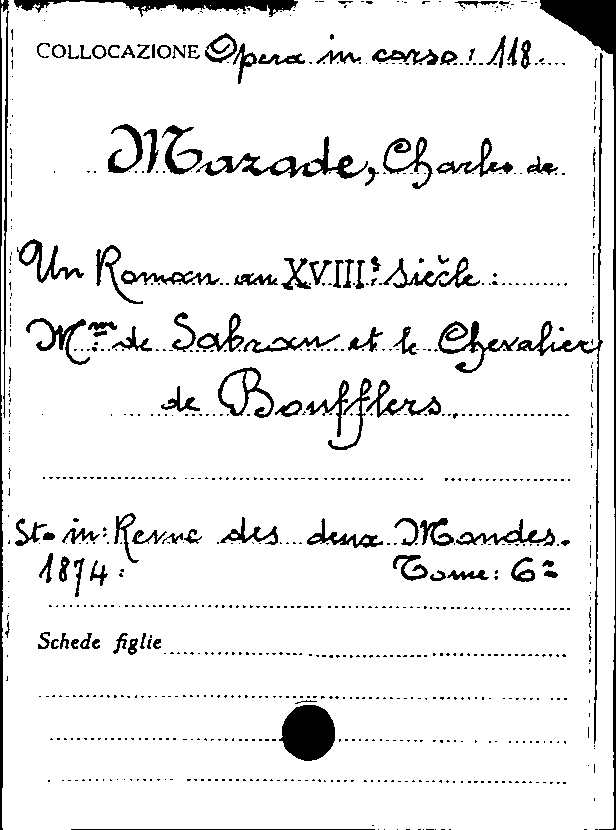 COLLOCAZIONE Opera in corso: 118.
Mazade, Charles de
Un Roman au XVIIIe siècle:
Mme de Sabran et le Chevalier
de Boufflers.
Sta in: Revue des deux Mondes.
1874: Tome: 6e
Schede figlie